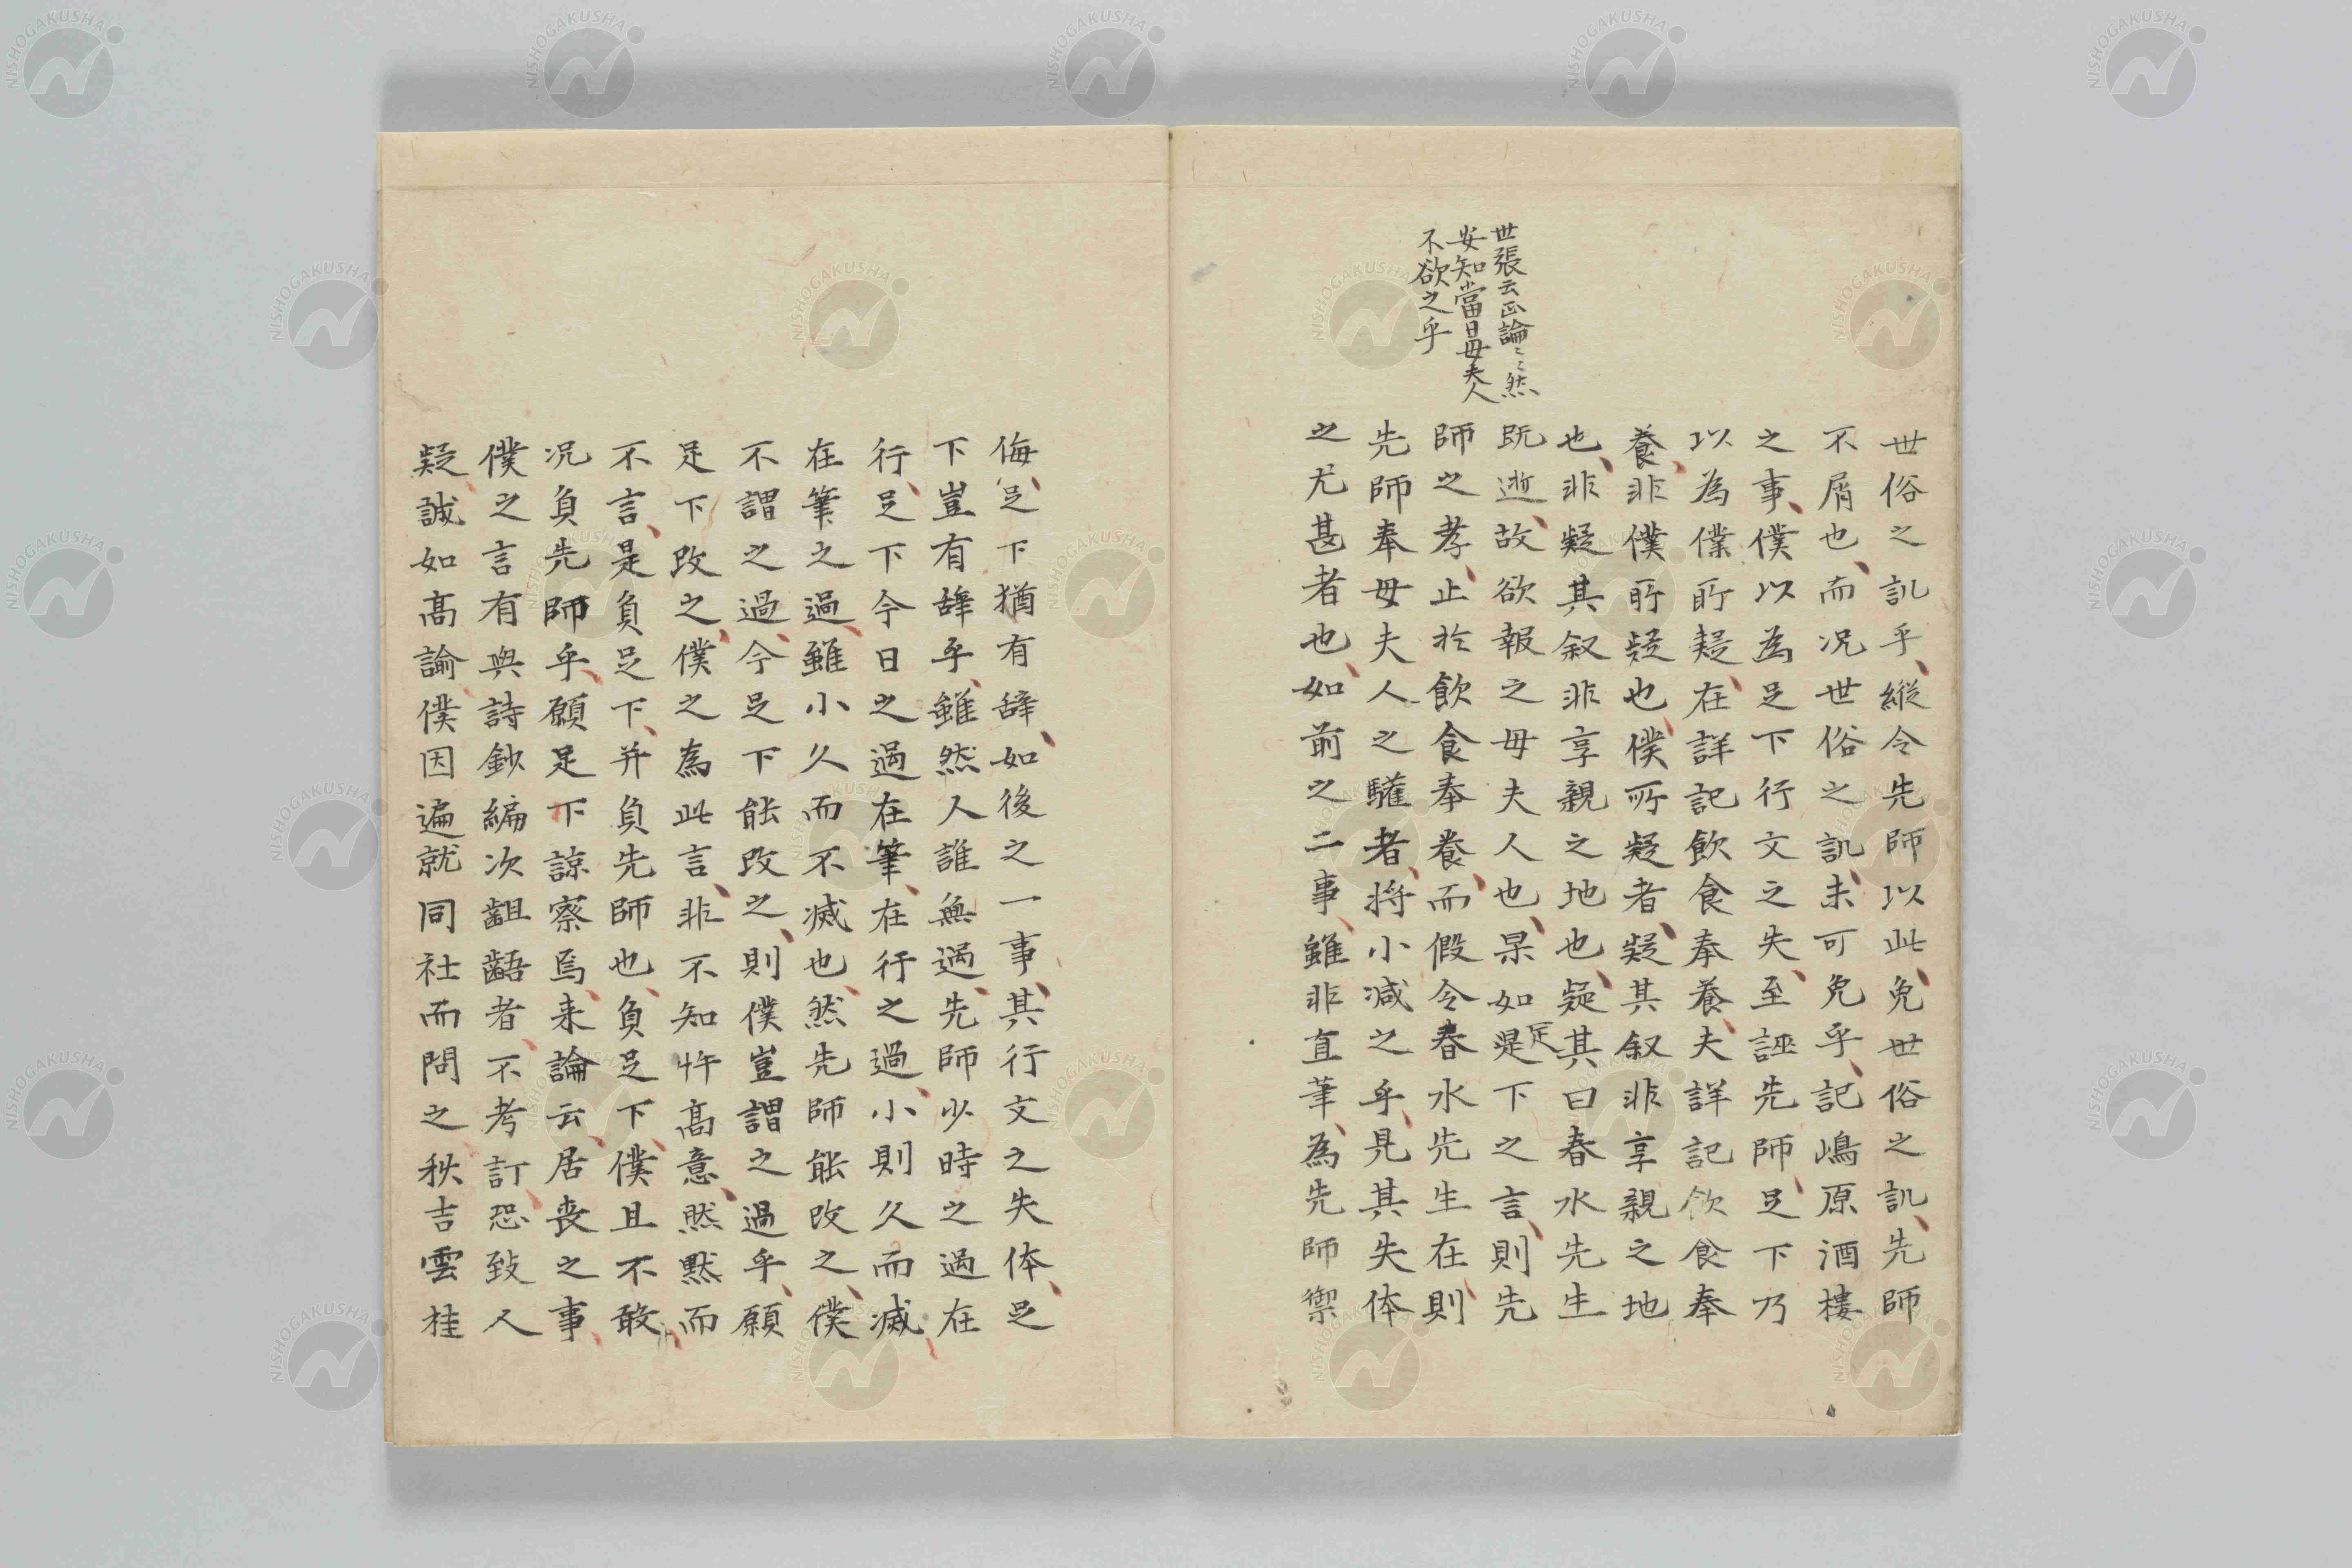 世張云正論〻〻然
安知當日毋夫人
不欲之乎
世俗之訕乎縱令先師以此免世俗之訕先師
不屑也而况世俗之訕未可免乎記嶋原酒樓
之事僕以為足下行文之失至誣先師足下乃
以為僕所疑在詳記飲食奉養夫詳記飲食奉
養非僕所疑也僕所疑者疑其叙非享親之地
也非疑其叙非享親之地也疑其曰春水先生
既逝故欲報之毋夫人也果如是足下之言則先
師之孝止於飲食奉養而假令春水先生在則
先師奉毋夫人之驩者將小减之乎見其失体
之尤甚者也如前之二事雖非直筆為先師禦
侮足下猶有辞如後之一事其行文之失体足
下豈有辞乎雖然人誰無過先師少時之過在
行足下今日之過在筆在行之過小則久而滅
在筆之過雖小久而不滅也然先師能改之僕
不謂之過今足下能改之則僕豈謂之過乎願
足下改之僕之為此言非不知忤高意然默而
不言是負足下并負先師也負足下僕且不敢
况負先師乎願足下諒察焉来論云居喪之事
僕之言有與詩鈔編次齟齬者不考訂恐致人
疑誠如高諭僕因遍就同社而問之秋吉雲桂
NISHOGAKUSHA